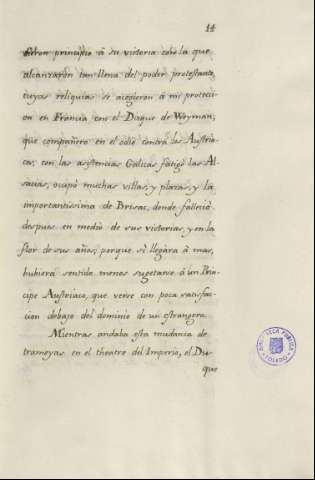 14
dieron principio à su victoria con la que
alcanzaròn tan llena del poder protestante,
cuyas reliquias se acogieron à mi protecci
on en Francia con el Duque de Weyman,
que compañero en el odio contra los Austria
cos, con las asistencias Galicas fatigò las Al
sacias, ocupò muchas villas, y plazas y la
importantissima de Brisac, donde falleciò
despues en medio de sus victorias, y en la
flor de sus años; porque si llegàra à mas,
hubiera sentido menos sugetarse à un Prin
cipe Austriaco, que verse con poca satisfac
cion debajo del dominio de un estrangero.
Mientras andaba esta mudanza de
tramoyas en el theatro del Imperio, el Du
que
BIBLIOTECA PUBLICA
TOLEDO